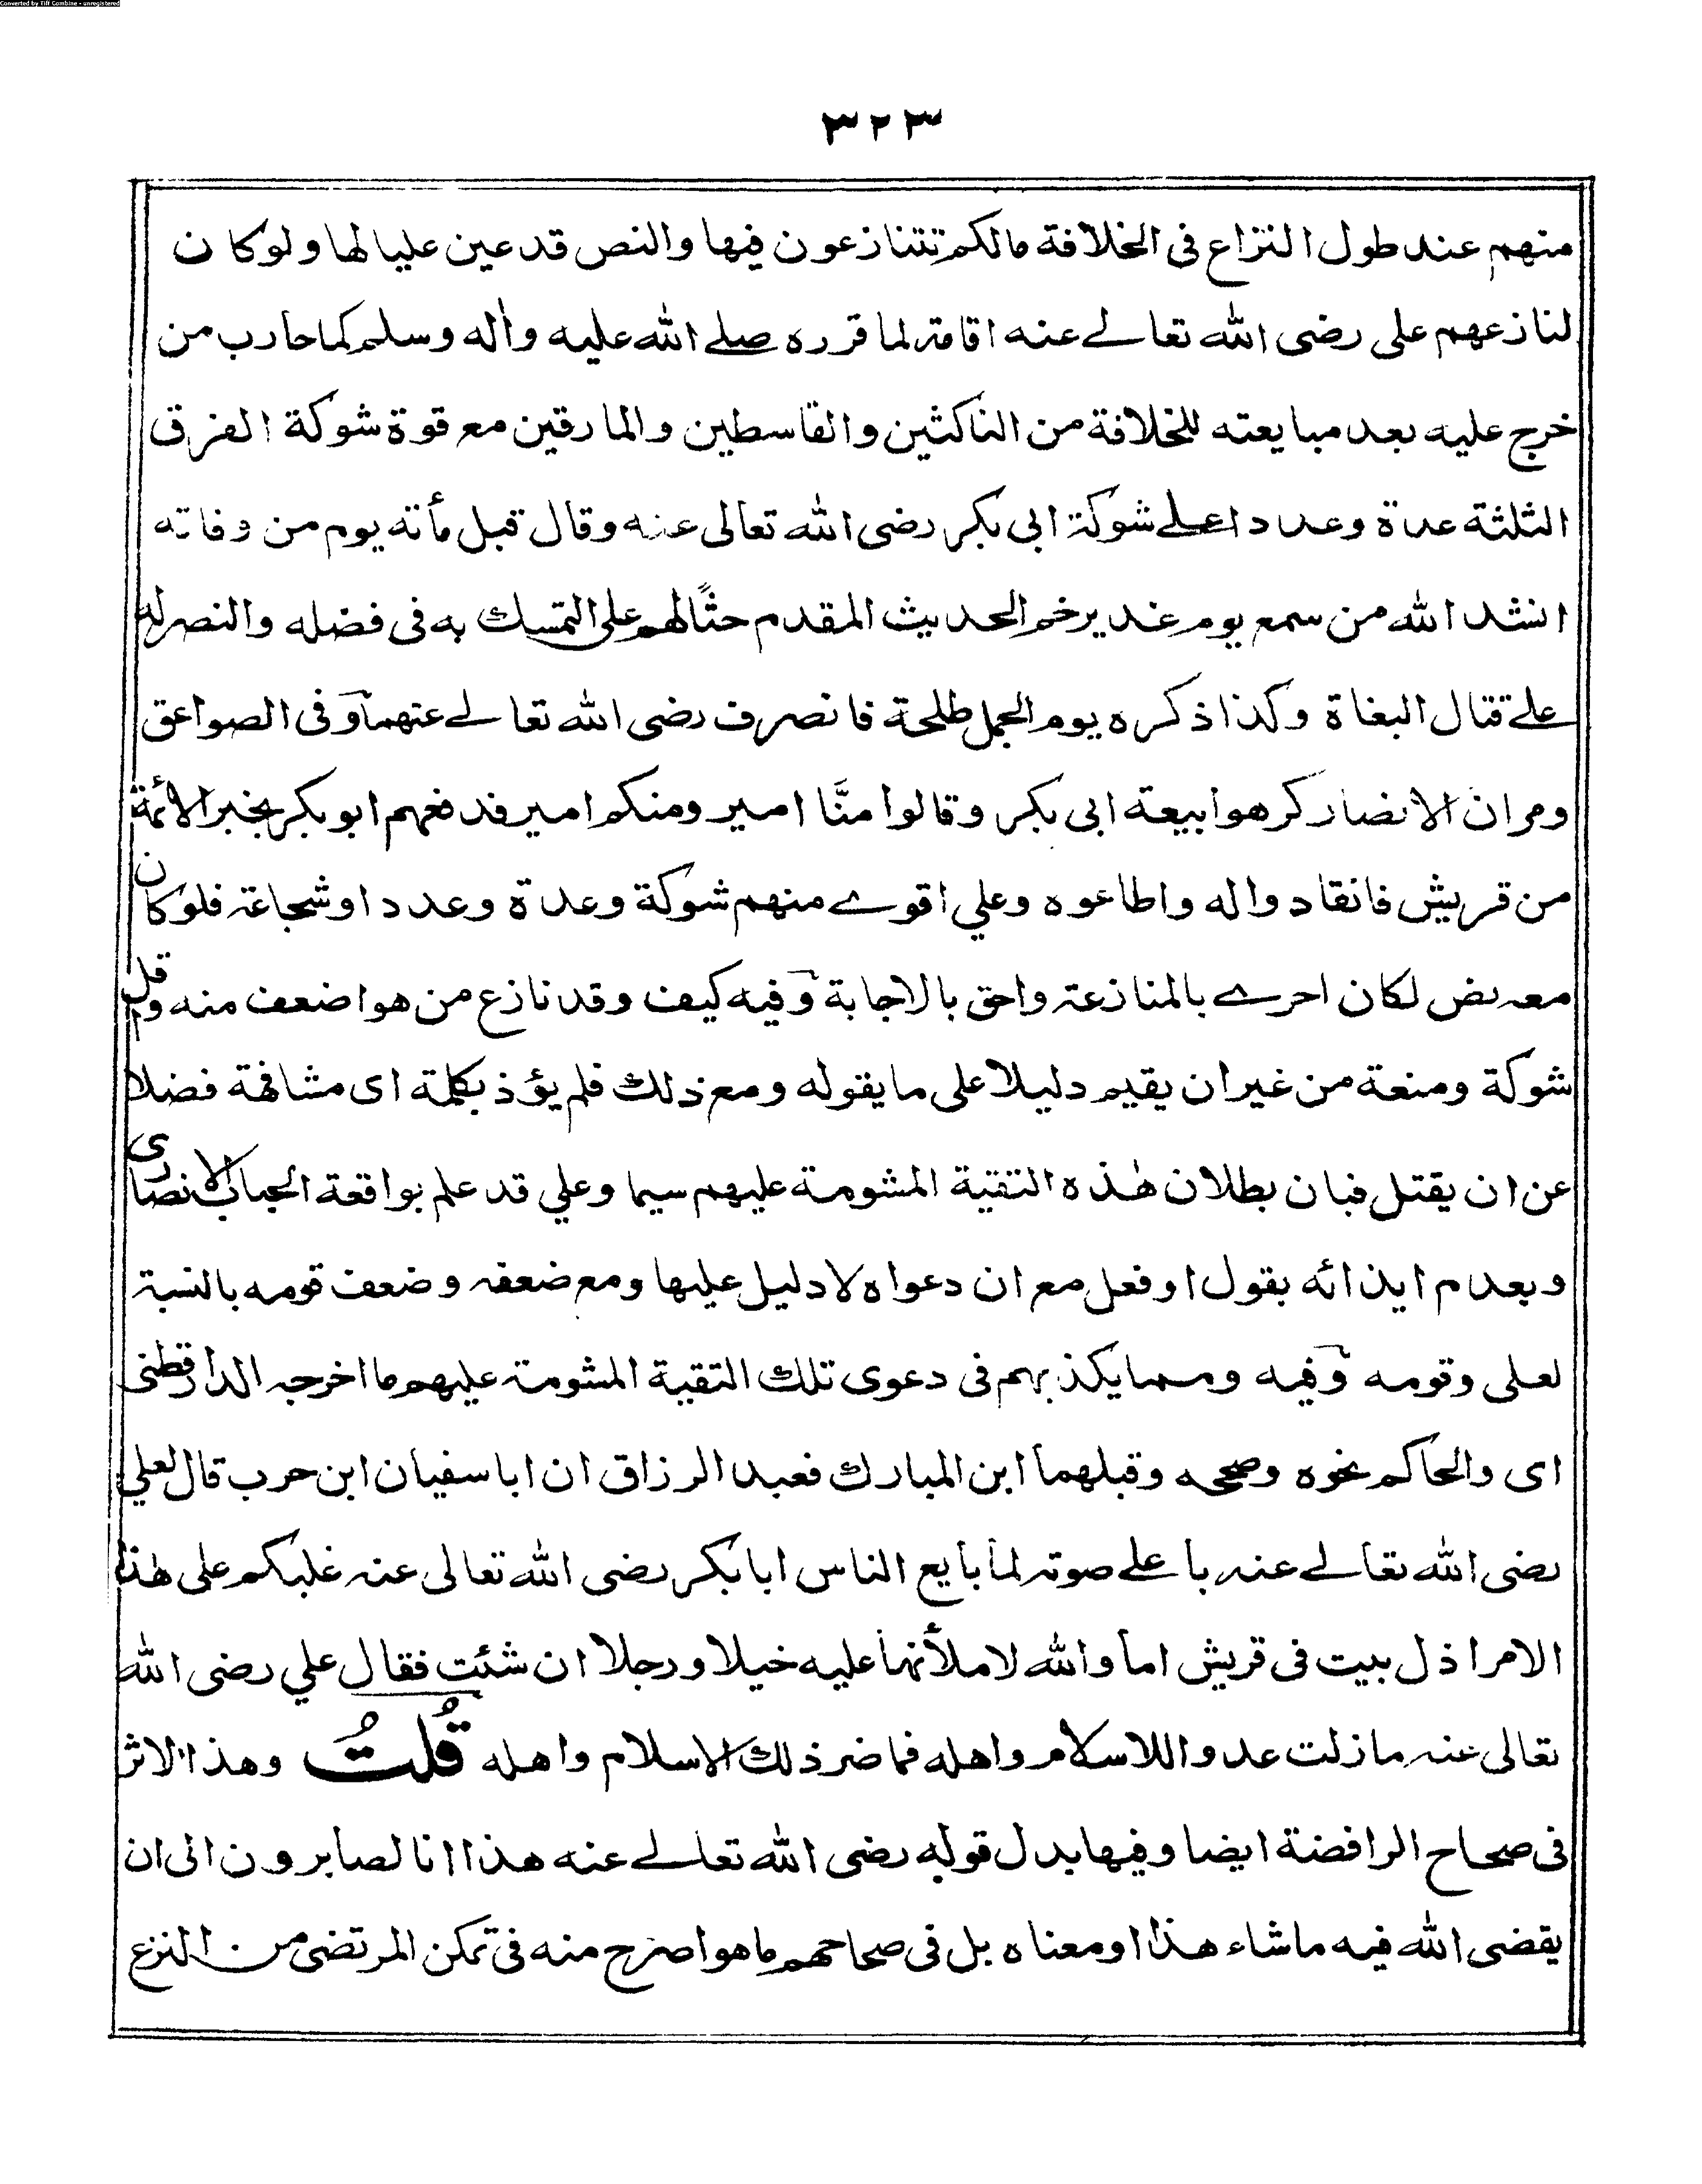 Converted by Tiff Combine - unregistered
٣٢٣
منهم عند طول النزاع فى الخلافة مالكم تتنازعون فيها والنص قد عين عليا لها ولو كان
لنازعهم على رضى الله تعالے عنه اقامة لما قرره صلے الله عليه وأله وسلم كما حارب من
خرج عليه بعد مبايعته للخلافة من الناكثين والقاسطين والمارقين مع قوة شوكة الفرق
الثلثة عدة وعددا علے شوكة ابى بكر رضى الله تعالى عنه وقال قبل مأته يوم من وفاته
انشد الله من سمع يوم غدير خم الحديث المقدم حثًّا لهم على التمسك به فى فضله والنصر له
علے قتال البغاة وكذا ذكره يوم الجمل طلحة فانصرف رضى الله تعالے عنهما وفى الصواعق
ومر ان الانصار كرهوا بيعة ابى بكر وقالوا منَّا امير ومنكم امير فدفعهم ابو بكر بخبر الائمة
من قريش فانقادوا له واطاعوه وعلي اقوے منهم شوكة وعدة وعددا وشجاعة فلو كان
معه نص لكان احرے بالمنازعة واحق بالاجابة وفيه كيف وقد نازع من هو اضعف منه وقل
شوكة ومنعة من غير ان يقيم دليلا على ما يقوله ومع ذلك فلم يؤذ بكلمة اى مشافهة فضلا
عن ان يقتل فبان بطلان هٰذه التقية المشومة عليهم سيما وعلي قد علم بواقعة الحباب الانصارى
وبعدم ايذائه بقول او فعل مع ان دعواه لا دليل عليها ومع ضعفه وضعف قومه بالنسبة
لعلى وقومه وفيه ومما يكذبهم فى دعوى تلك التقية المشومة عليهم ما اخرجه الدارقطنى
اى والحاكم نحوه وصححه وقبلهما ابن المبارك فعبد الرزاق ان ابا سفيان ابن حرب قال لعلي
رضى الله تعالے عنه باعلے صوته لما بايع الناس ابا بكر رضى الله تعالى عنه غلبكم على هٰذا
الامر اذل بيت فى قريش اما والله لاملأنها عليه خيلا ورجلا ان شئت فقال علي رضى الله
تعالى عنه ما زلت عدوا للاسلام واهله فما ضر ذلك الاسلام واهله قُلتُ وهذا الاثر
فى صحاح الرافضة ايضا وفيها بدل قوله رضى الله تعالے عنه هذا انا لصابرون الى ان
يقضى الله فيه ما شاء هذا او معناه بل فى صحاحهم ما هو اصرح منه فى تمكن المرتضى من النزع